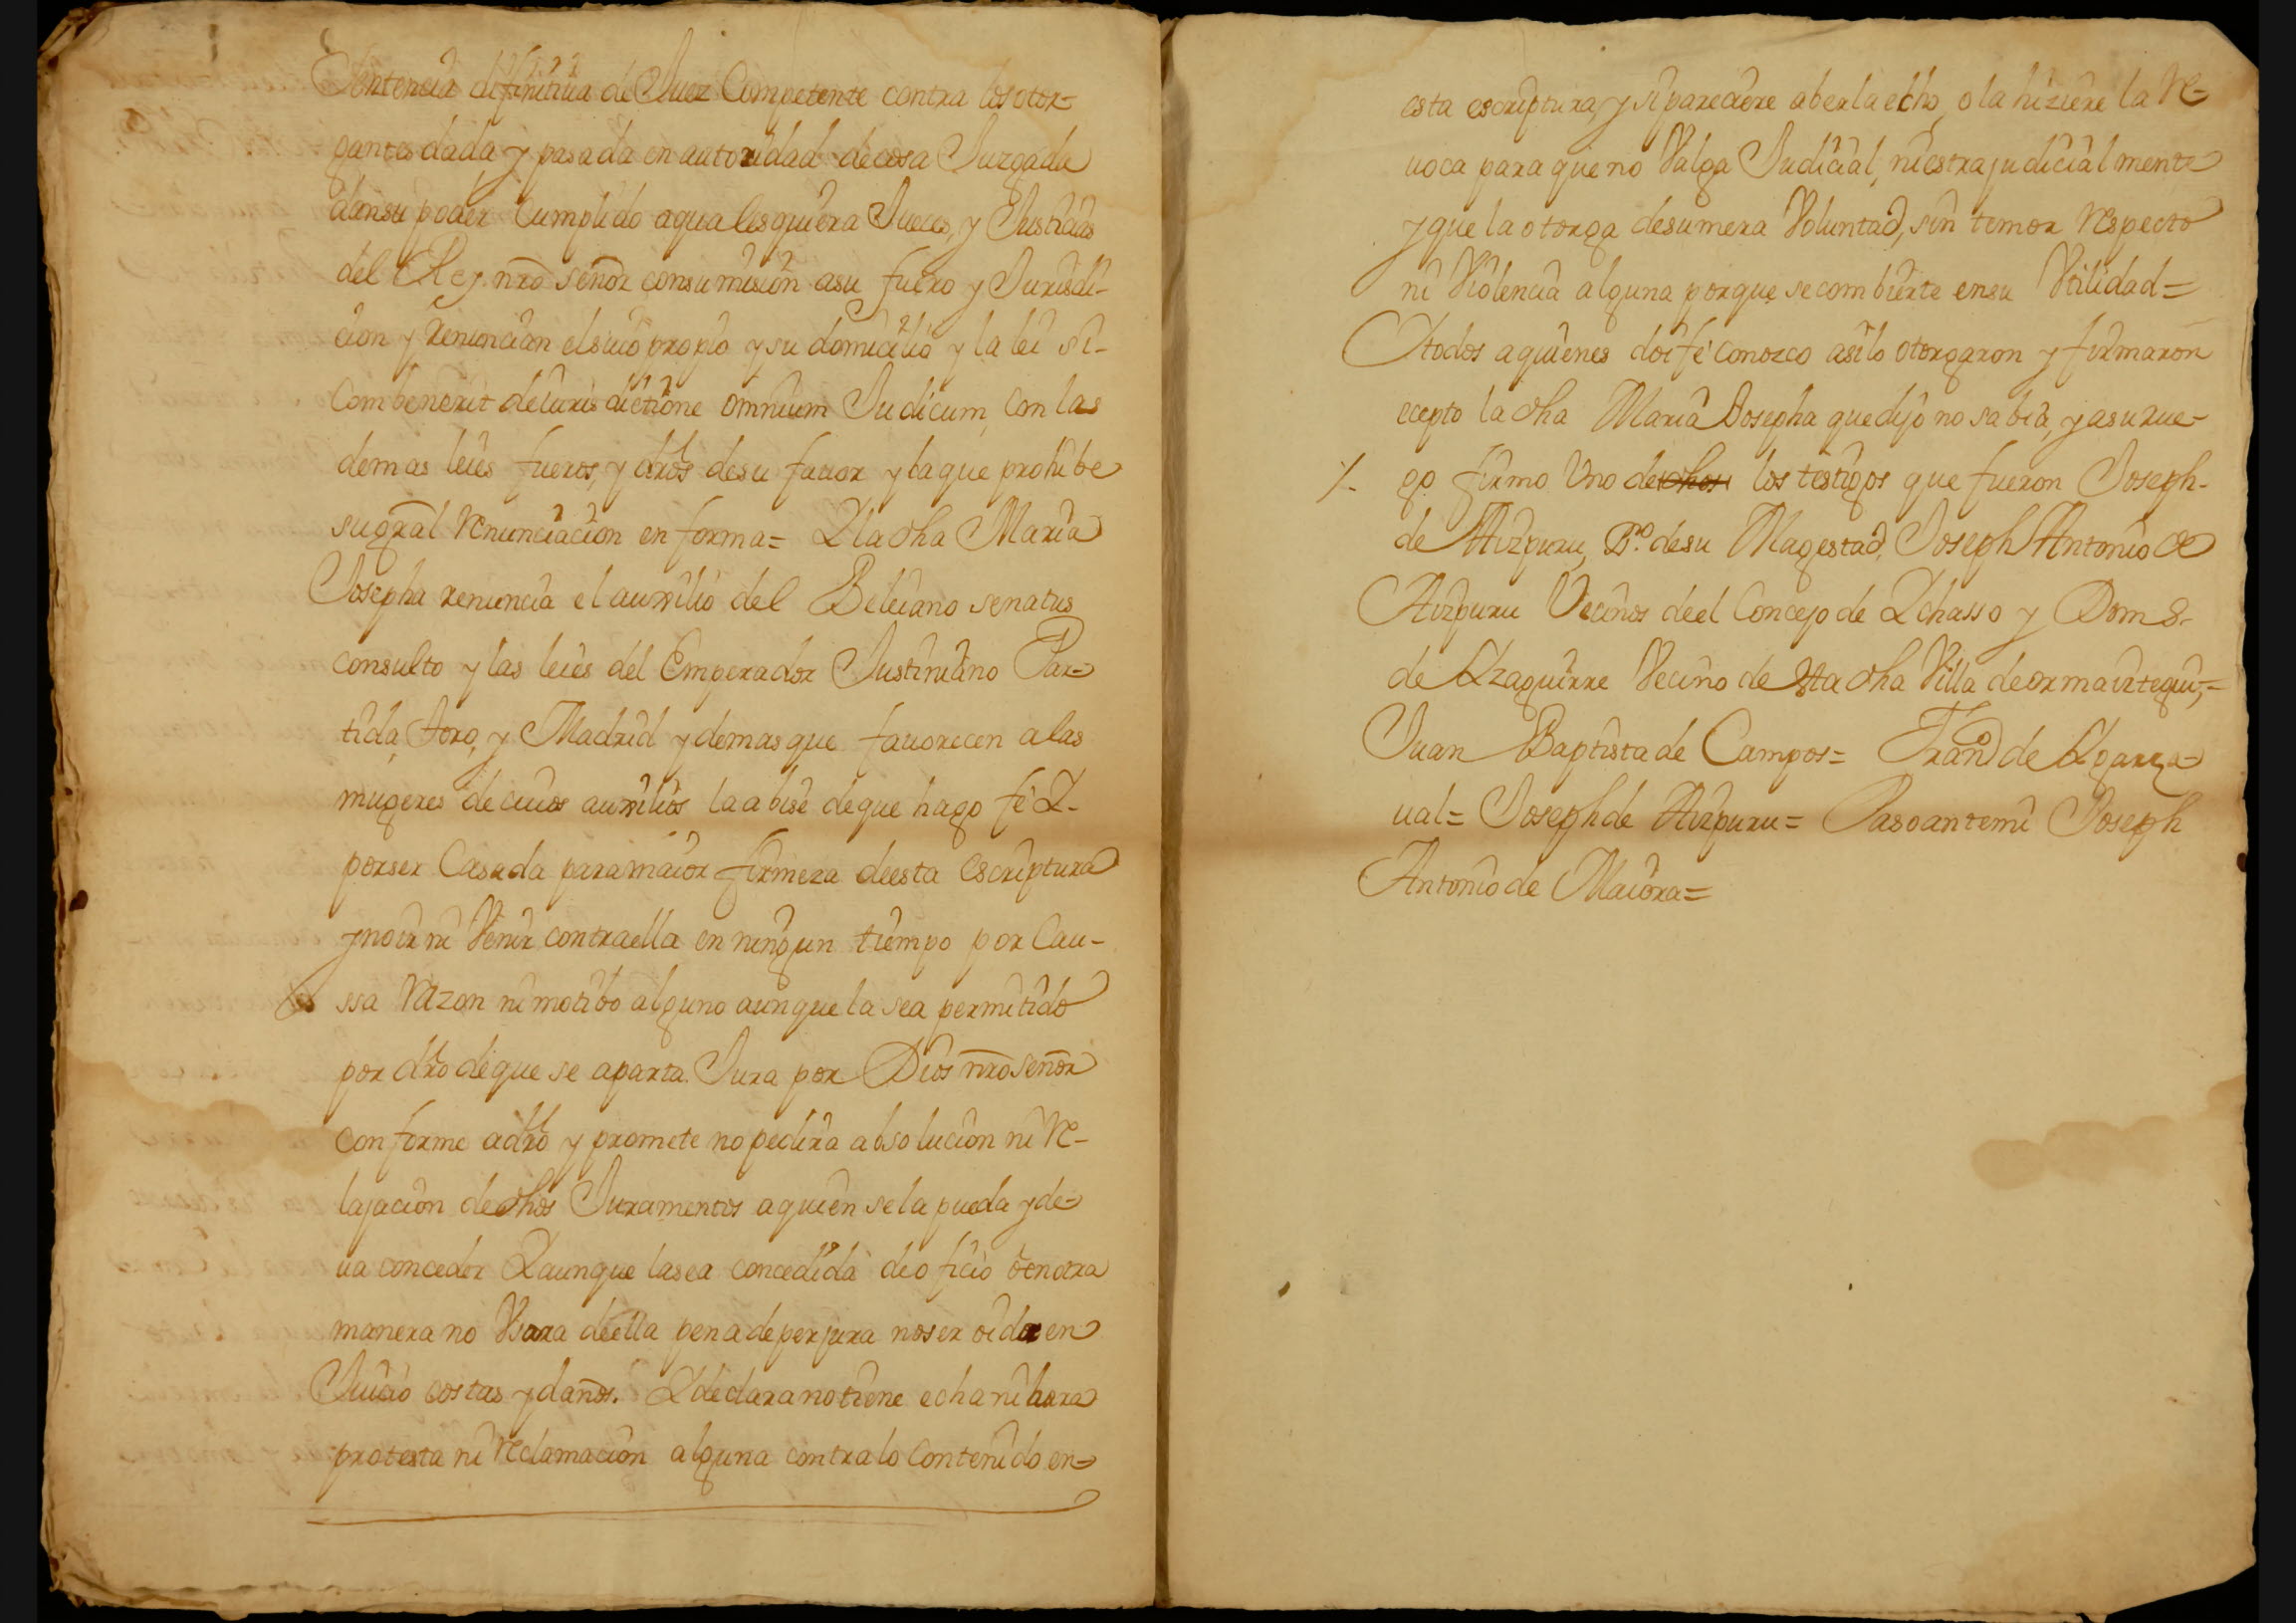 Sentencia definitiua de Juez Competente contra los otor=
gantes dada y pasada en autoridad de cosa Juzgada
dan su poder Cumplido aqualesquiera Jueces, y Justicias
del Rey nr̃o señor con sumision asu fuero y Jurisdi-
cion y renuncian el suio propio y su domicilio y la lei si-
Combenerit de iurisdictione omnium Judicum, con las
demas leies fueros, y dr̃os de su fauor y la que prohibe
su gr̃al renunciacion en forma= Y la dha Maria
Josepha renuncia el auxilio del Beleiano senatus
consulto y las leies del Emperador Justiniano Par=
tida, toro, y Madrid y demas que fauorecen a las
mugeres de cuios auxilios la abise de que hago fé Y-
por ser Casada para maior firmeza de esta escriptura
y no ir ni Venir contra ella en ningun tiempo por Cau-
ssa razon ni motibo alguno aunque la sea permitido
por dr̃o de que se aparta. Jura por Dios nr̃o señor
conforme a dr̃o y promete no pedira absolucion ni re-
lajacion de dhos Juramentos a quien se la pueda y de=
ua conceder Y aunque la sea concedida de oficio o en otra
manera no Vsara de ella pena de perjura no ser oida en
Juicio costas y daños. Y declara no tiene echa ni hara
protesta ni reclamacion alguna contra lo contenido en=
esta escriptura, y si pareciere aberla echo, o la hiziere la re=
uoca para que no Valga Judicial, ni estrajudicialmente
y que la otorga de su mera Voluntad, sin temor respecto
ni Violencia alguna porque se combierte en su Vtilidad=
Y todos a quienes doi fé conozco asi lo otorgaron y firmaron
ecepto la dha Maria Josepha que dijo no sabia, y a su rue-
go firmo Vno de dhos los testigos que fueron Joseph-
de Aizpuru, Bº de su Magestad, Joseph Antonio de
Aizpuru Vecinos de el Concejo de Ychasso y Dom S.
de Yzaguirre Vecino de esta dha Villa de ormaiztegui,=
Juan Baptista de Campos= Franº de Ygarza=
ual= Joseph de Aizpuru= Paso ante mi Joseph
Antonio de Maiora=